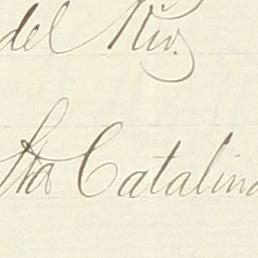 del Rio.
Sta Catalina